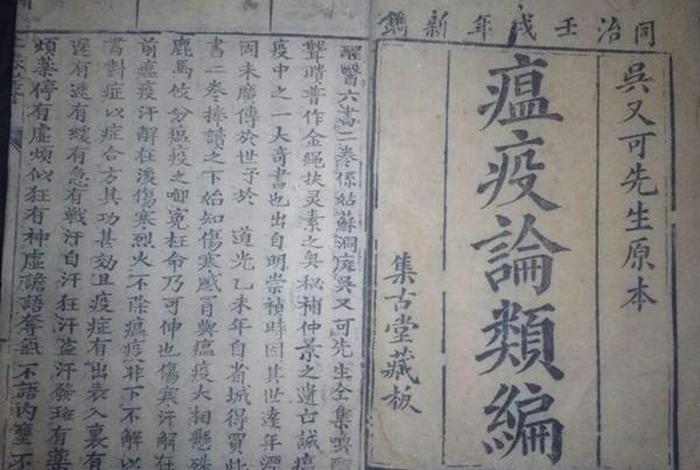 同治壬戌年新鐫
吳又可先生原本
瘟疫論類編
集古堂藏板
醒醫六書二卷係姑蘇洞庭吳又可先生全集喚
聾聵普作金繩扶靈素之奧秘補仲景之遺亡誠瘟
疫中之一大奇書也出自明崇禎時因其世遠年湮
固未廣傳於世予於 道光乙未年自省城得買此
書二卷捧讀之下始知傷寒感冒與瘟疫大相懸殊
鹿馬攸分瘟疫之啣寃枉命乃可伸也傷寒汗解在
前瘟疫汗解在後傷寒烈火不除瘟疫非下不解以
書對症以症合方其功甚効且疫症有出表入裏有
遲有速有緩有急有戰汗自汗狂汗盜汗發斑有藥
煩藥停有虛煩似狂有神虛譫語奪氣不語內壅不